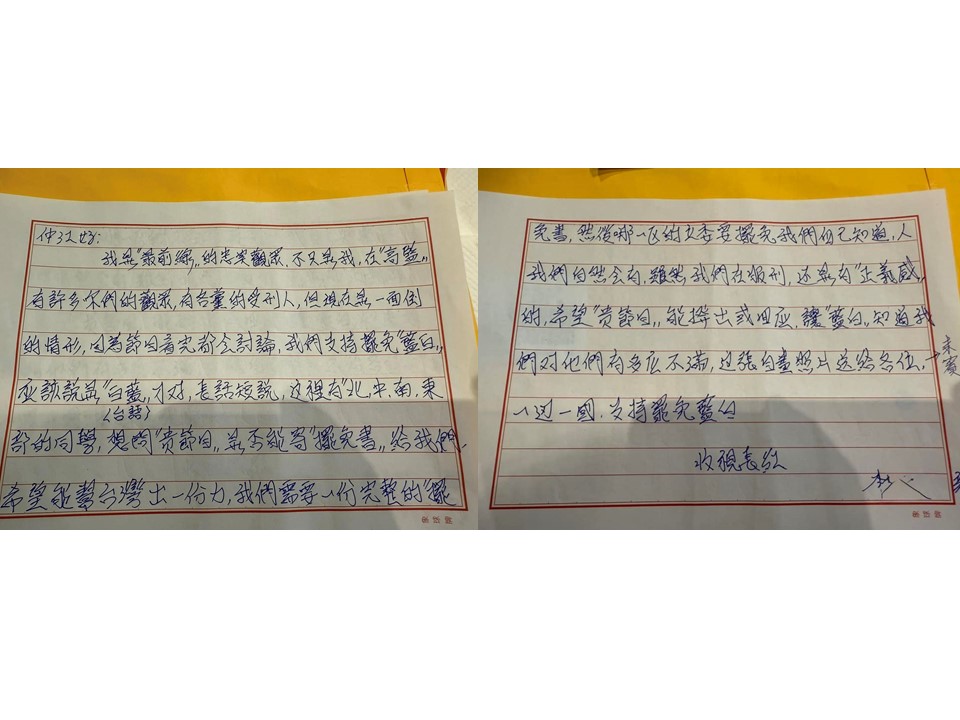 仲江好:
我是"最前線"的忠实觀眾,不只是我,在"高監"
有許多你們的觀眾,有各黨的受刑人,但現在是一面倒
的情形,因為節目看完都会討論,我們支持擺免"藍白"
应該說是"白藍"才对,長話短說,这裡有"北,中,南,東
(台語)
部的同學,想問"貴節目"是否能寄"擺免書"給我們,
希望能幫台灣出一份力,我們需要一份完整的"擺
免書,然後哪一区的立委要擺免我們自己知道,人
我們自然会有,雖然我們在服刑,还是有"正義感"
的,希望"貴節目"能播出或回应,讓"藍白"知道我
們对他們有多应不滿,这張自畫照片送給各位,
來賓
一边一國,支持擺免藍白
收視長紅